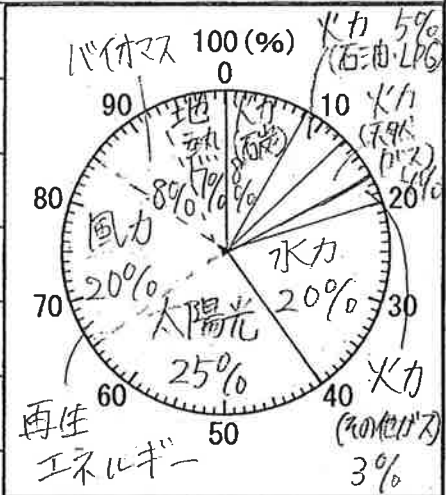 100 (%)
0
10
20
30
40
50
60
70
80
90
バイオマス
8%
地熱
7%
火力
(石炭)
8%
火力 5%
(石油・LPG)
火力
(天然
ガス)
4%
火力
(その他ガス)
3%
水力
20%
太陽光
25%
風力
20%
再生
エネルギー